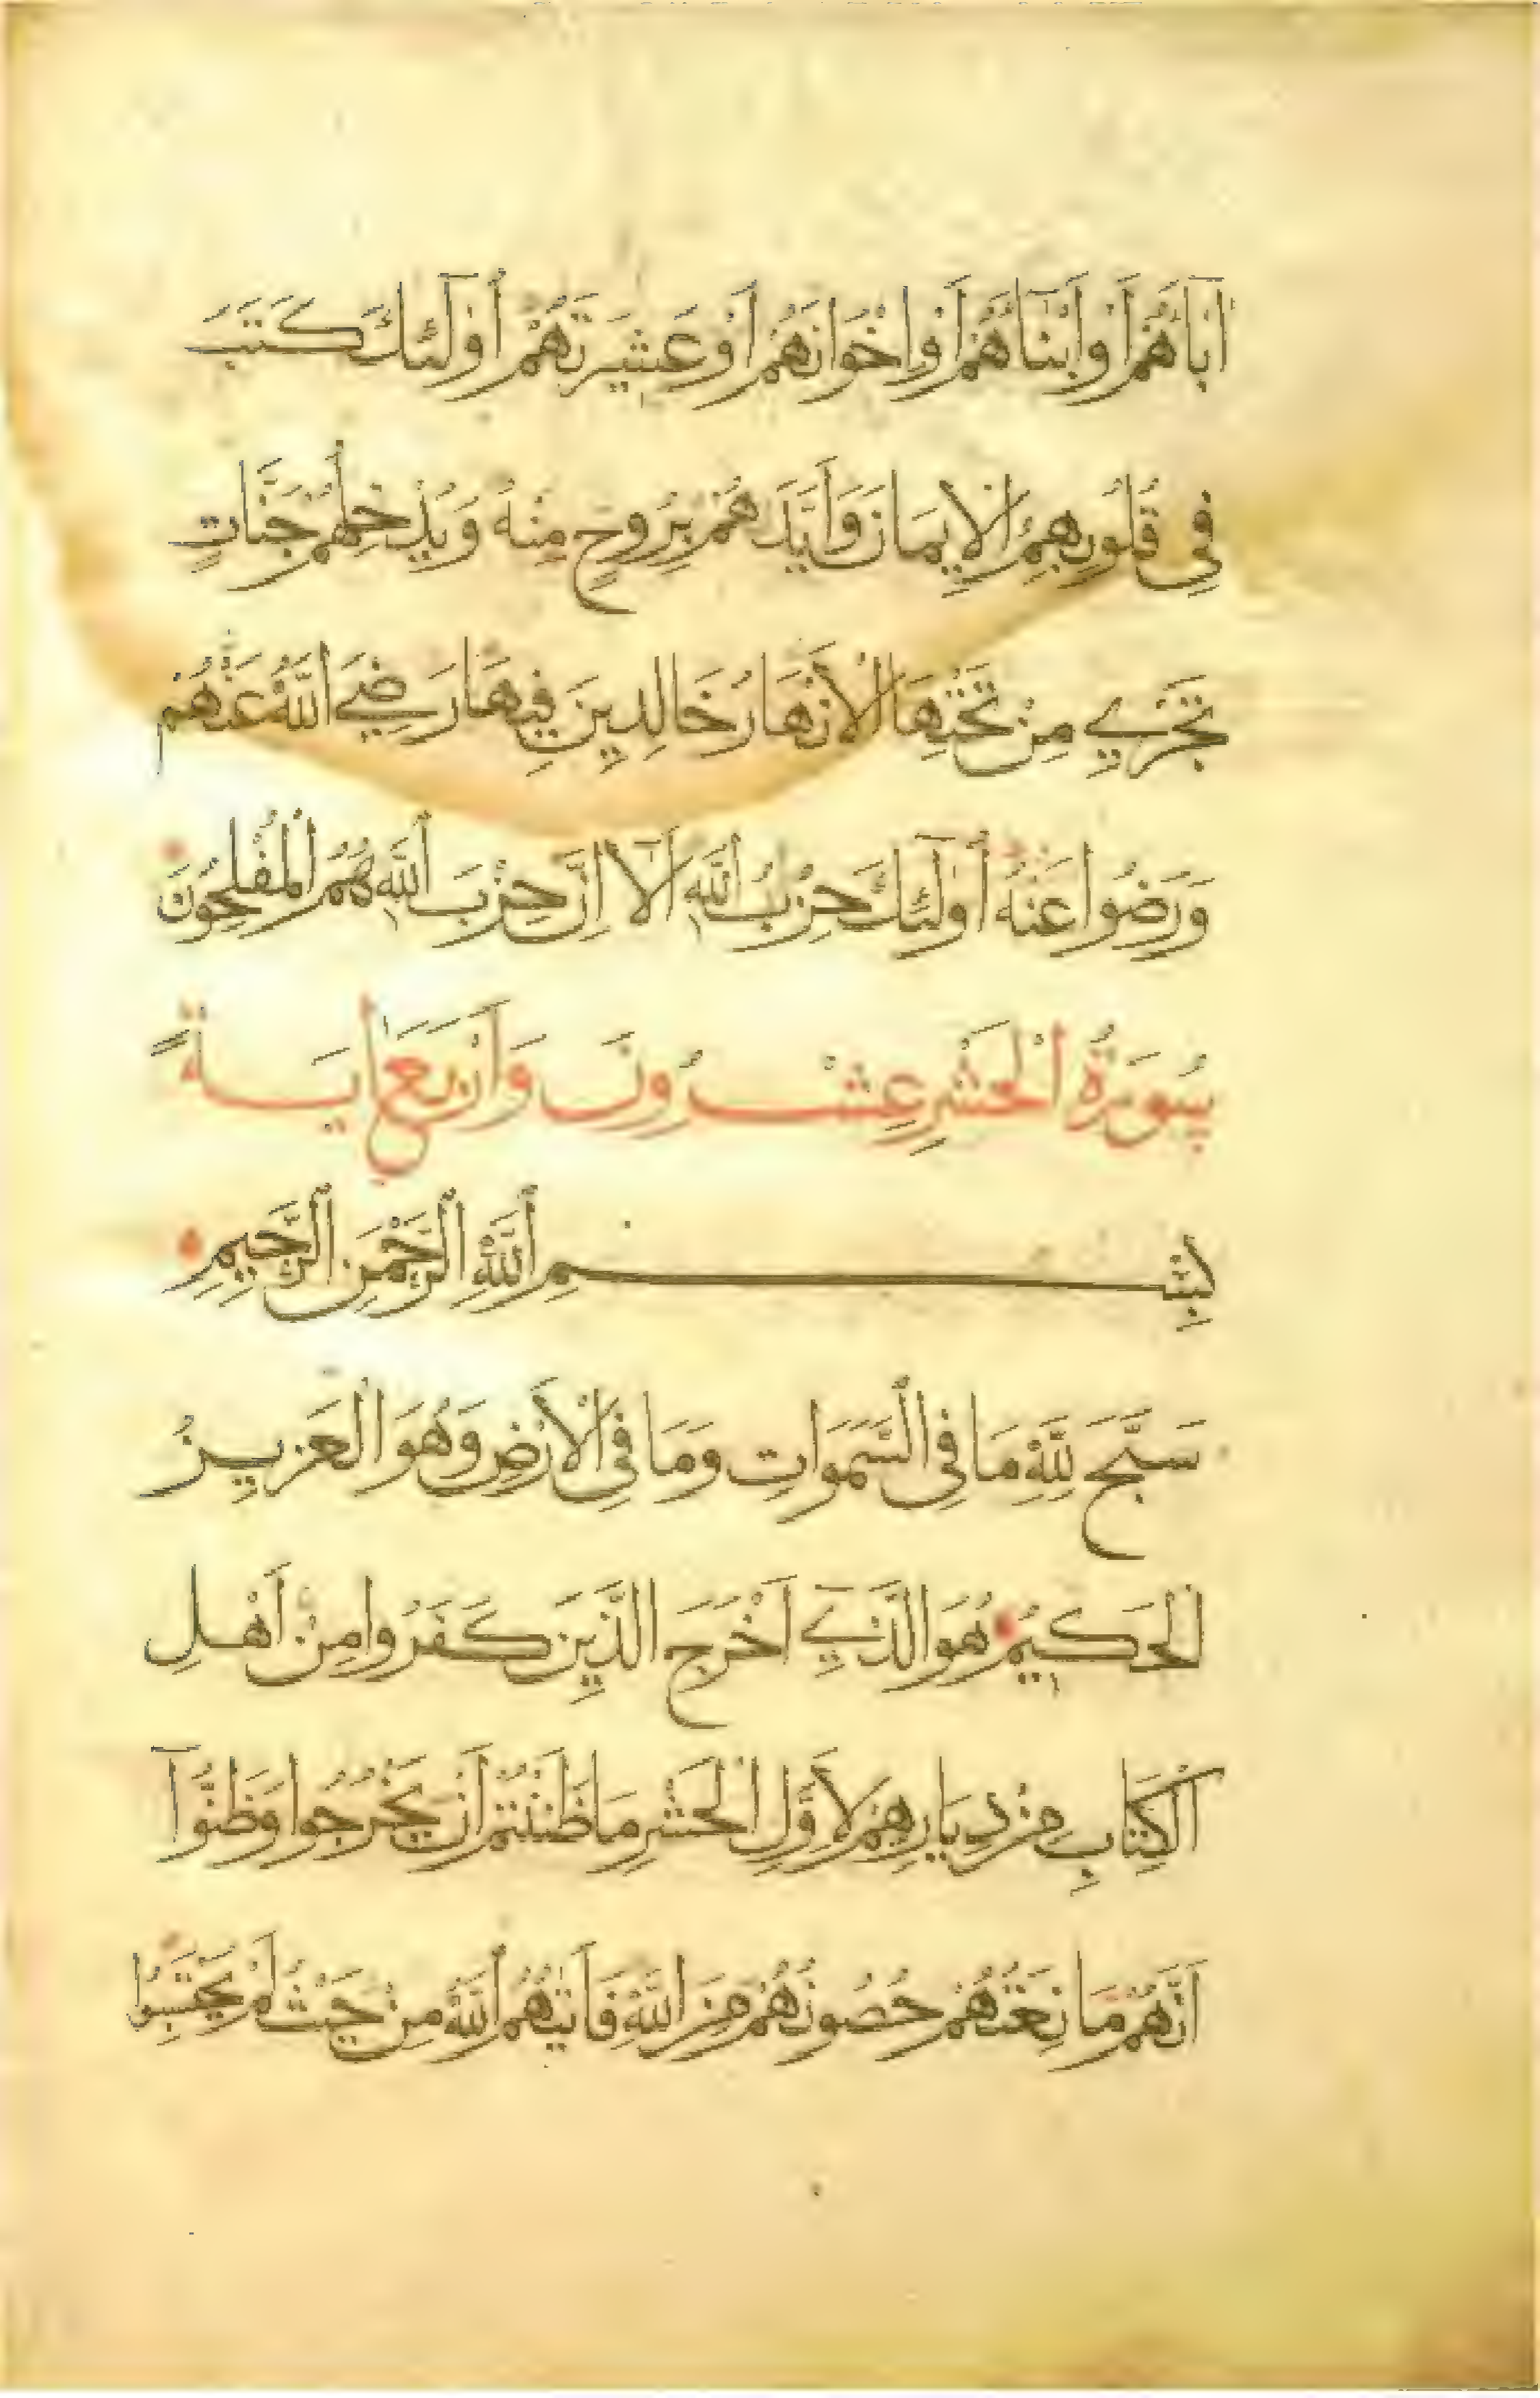 اٰبَاءَهُمْ أَوْ أَبْنَاءَهُمْ أَوْ اِخْوَانَهُمْ أَوْ عَشِيرَتَهُمْ أُولَٓئِكَ كَتَبَ
فِي قُلُوبِهِمُ الْاِيمَانَ وَأَيَّدَهُمْ بِرُوحٍ مِنْهُ وَيُدْخِلُهُمْ جَنَّاتٍ
تَجْرِي مِنْ تَحْتِهَا الْأَنْهَارُ خَالِدِينَ فِيهَا رَضِيَ اللّٰهُ عَنْهُمْ
وَرَضُوا عَنْهُ أُولَٓئِكَ حِزْبُ اللّٰهِ أَلَٓا اِنَّ حِزْبَ اللّٰهِ هُمُ الْمُفْلِحُونَ
سُورَةُ الْحَشْرِ عِشْرُونَ وَأَرْبَعُ اٰيَةً
بِسْمِ اللّٰهِ الرَّحْمٰنِ الرَّحِيمِ
سَبَّحَ لِلّٰهِ مَا فِي السَّمَوَاتِ وَمَا فِي الْأَرْضِ وَهُوَ الْعَزِيزُ
الْحَكِيمُ هُوَ الَّذِي أَخْرَجَ الَّذِينَ كَفَرُوا مِنْ أَهْلِ
الْكِتَابِ مِنْ دِيَارِهِمْ لِأَوَّلِ الْحَشْرِ مَا ظَنَنْتُمْ أَنْ يَخْرُجُوا وَظَنُّوٓا
أَنَّهُمْ مَانِعَتُهُمْ حُصُونُهُمْ مِنَ اللّٰهِ فَأَتٰيهُمُ اللّٰهُ مِنْ حَيْثُ لَمْ يَحْتَسِبُوا